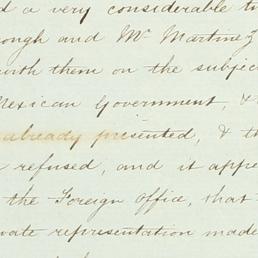 a very considerable
and Mr Martinez
with them on the subjec
Mexican Government, &
already presented, & th
refused, and it appe
the Foreign Office, that
vate representation made